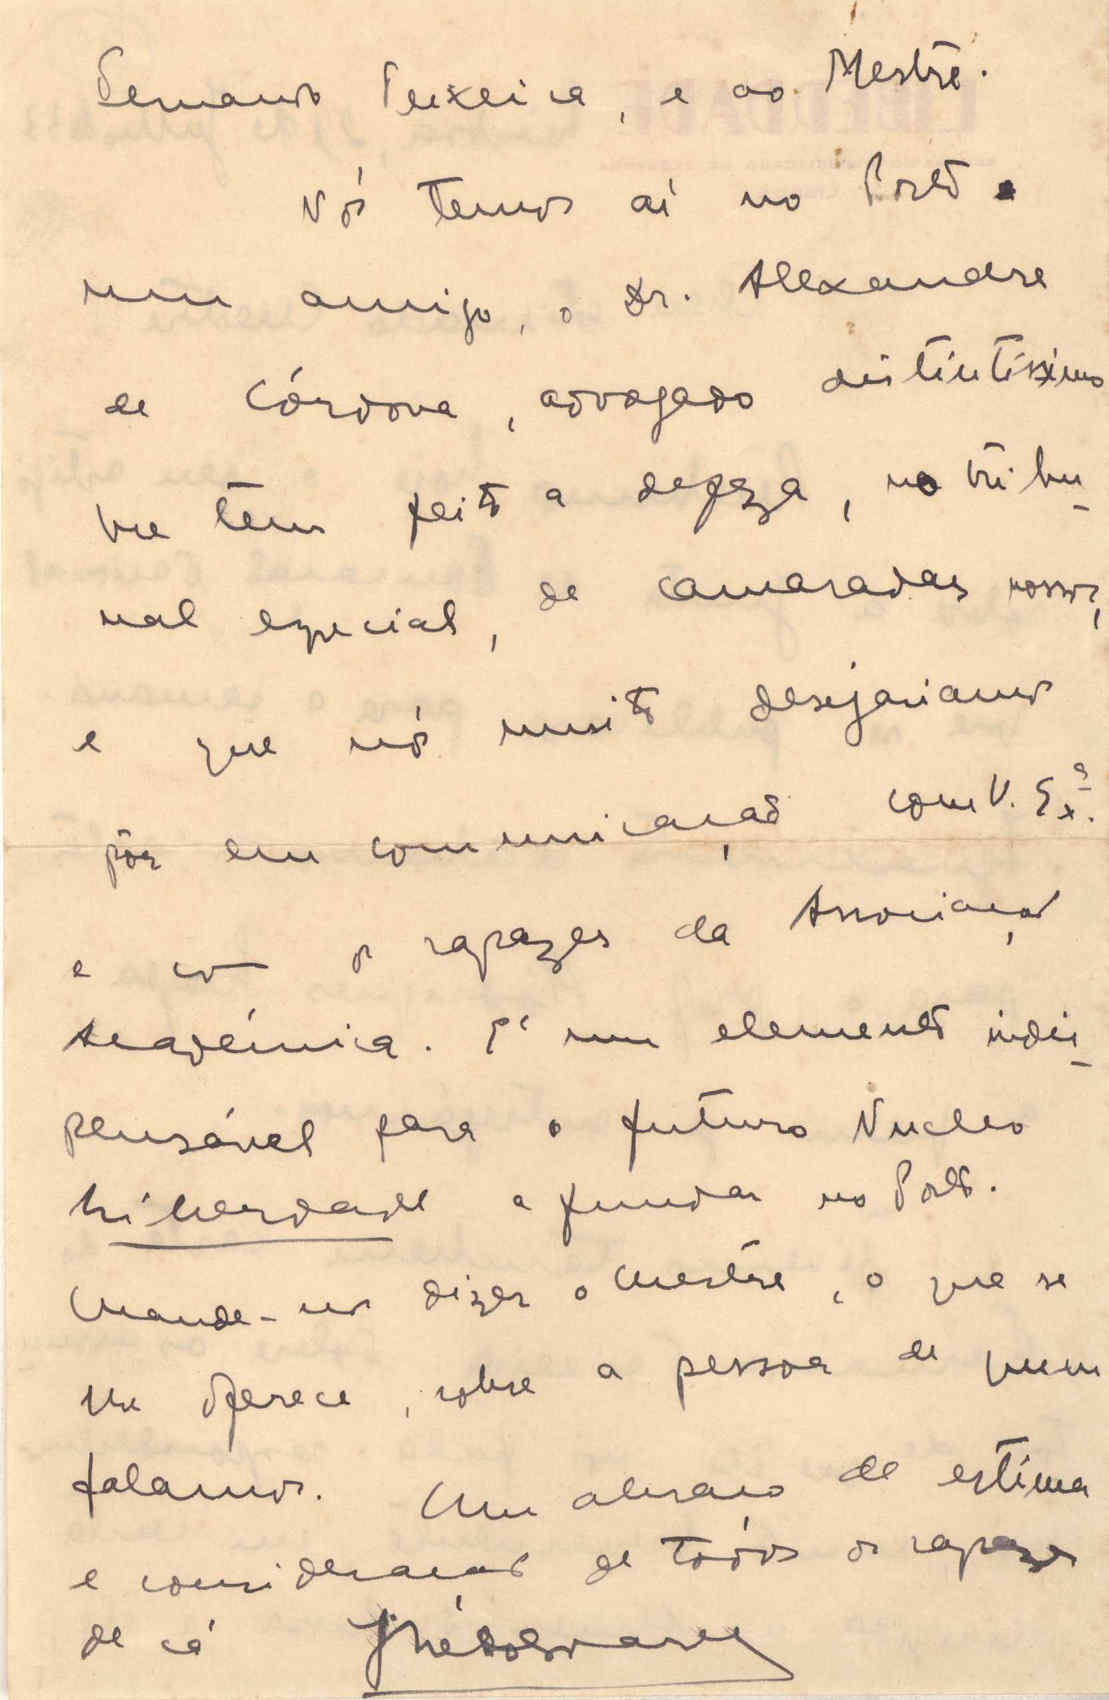 Bernardo Teixeira, e ao Mestre.
Nós temos aí no Porto
um amigo, o Dr. Alexandre
de Córdova, advogado distintíssimo
que tem feito a defeza, no tribu-
nal especial, de camaradas nossos,
e que nós muito desejariamos
pôr em comunicação com V. Ex.ª
e com os rapazes da Associação
Académica. É um elemento indis-
pensável para o futuro Nucleo
Liberdade a fundar no Porto.
Mande-nos dizer o Mestre, o que se
lhe oferece, sobre a pessoa de quem
falamos. Um abraço de estima
e consideração de todos os rapazes
de cá